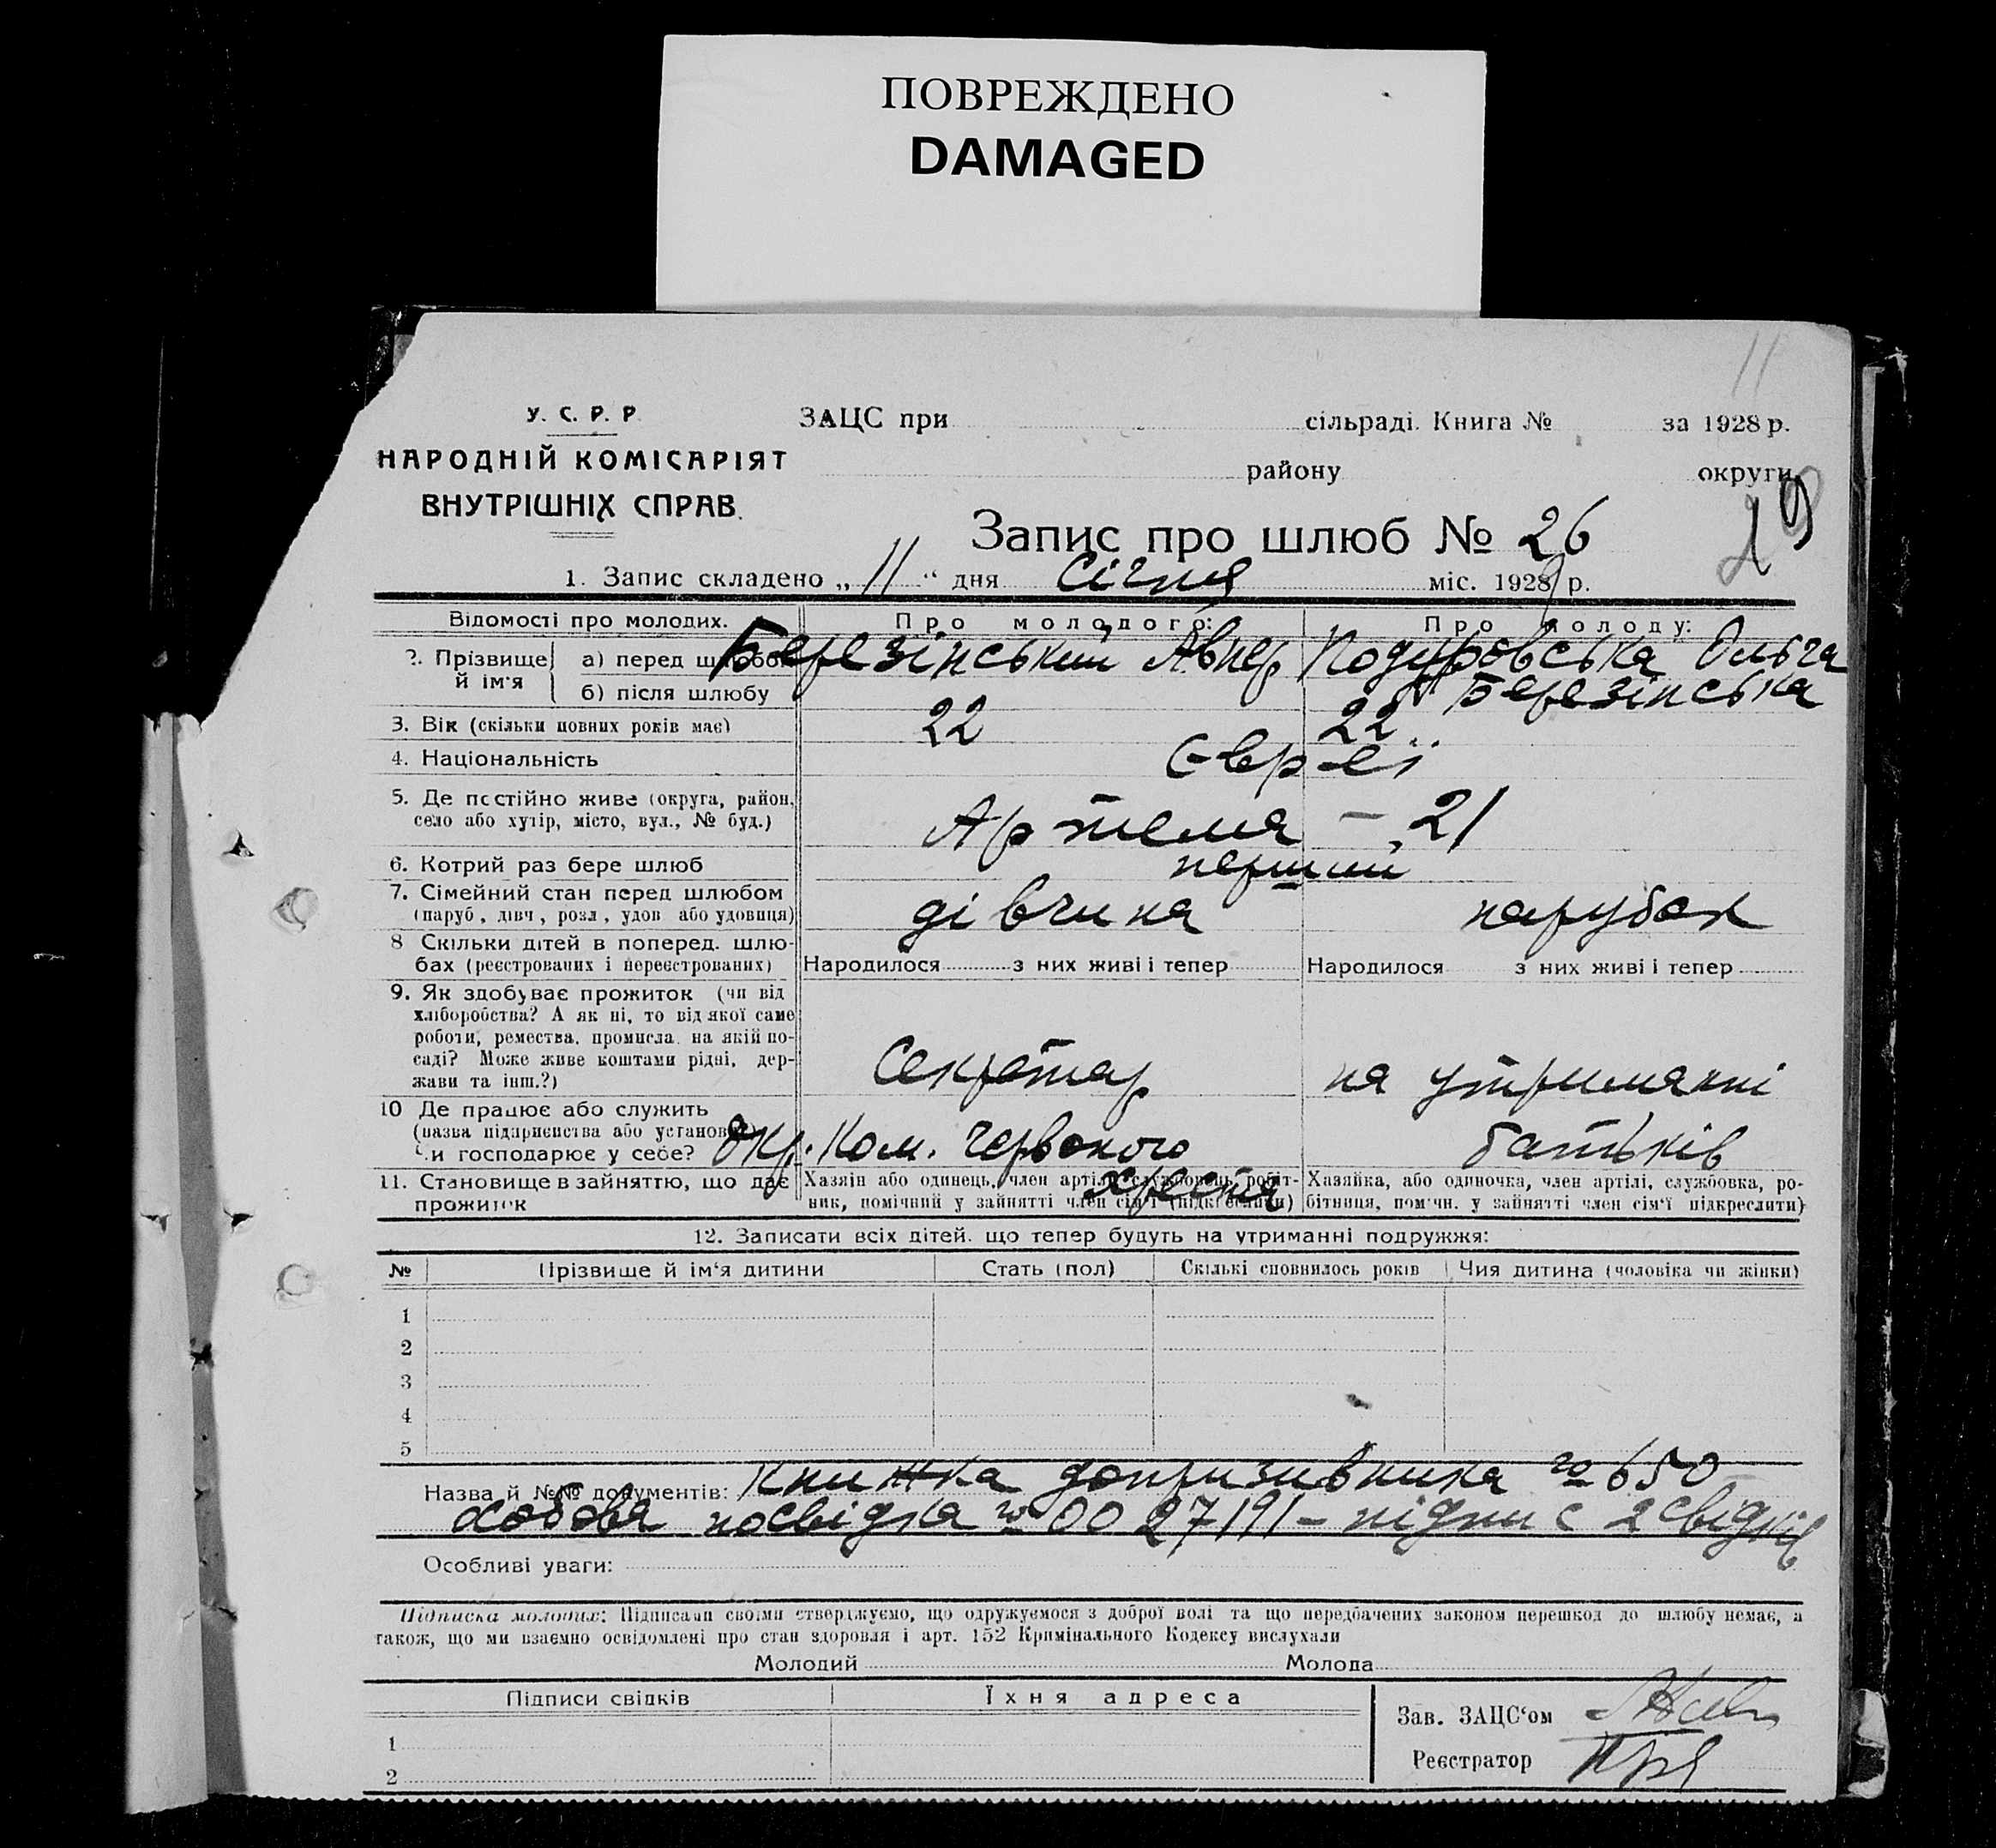 ПОВРЕЖДЕНО
DAMAGED
11
У. С. Р. Р.
НАРОДНІЙ КОМІСАРІЯТ
ВНУТРІШНІХ СПРАВ.
ЗАЦС при сільраді. Книга № за 1928 р.
району округи
19
Запис про шлюб № 26
1. Запис складено „ 11 “ дня Січня міс. 1929 р.
Відомості про молодих. Про молодого: Про молоду:
2. Прізвище й ім'я
а) перед шлюбом Березінський Авнер Подуровська Ольга
б) після шлюбу Березінська
3. Вік (скільки повних років має) 22 22
4. Національність Євреї
5. Де постійно живе (округа, район,
село або хутір, місто, вул., № буд.) Артема - 21
6. Котрий раз бере шлюб перший
7. Сімейний стан перед шлюбом
(паруб, дівч, розл, удов або удовиця) дівчина парубок
8 Скільки дітей в поперед. шлю-
бах (реєстрованих і нереєстрованих) Народилося з них живі і тепер Народилося з них живі і тепер
9. Як здобуває прожиток (чи від
хліборобства? А як ні, то від якої саме
роботи, ремества, промисла, на якій по-
саді? Може живе коштами рідні, дер-
жави та інш.?) Секретар на утриманні
10 Де працює або служить
(назва підприємства або установи)
Чи господарює у себе? Окр. Ком. Червоного Хреста батьків
11. Становище в зайняттю, що дає
прожиток
Хазяін або одинець, член артілі, службовець, робіт-
ник, помічний у зайнятті член сім'ї (підкреслити)
Хазяйка, або одиночка, член артілі, службовка, ро-
бітниця, пом'чн. у зайнятті член сім'ї підкреслити)
12. Записати всіх дітей, що тепер будуть на утриманні подружжя:
№ Прізвище й ім'я дитини Стать (пол) Скількі сповнилось років Чия дитина (чоловіка чи жінки)
1
2
3
4
5
Назва й №№ документів: Книжка допризивника № 650
особова посвідка № 0027191 - підпис 2 свідків
Особливі уваги:
Підписка молодих: Підписами своїми стверджуємо, що одружуємося з доброї волі та що передбачених законом перешкод до шлюбу немає, а
також, що ми взаємно освідомлені про стан здоровля і арт. 152 Кримінального Кодексу вислухали
Молодий Молода
Підписи свідків Їхня адреса
Зав. ЗАЦС'ом
Реєстратор
1
2